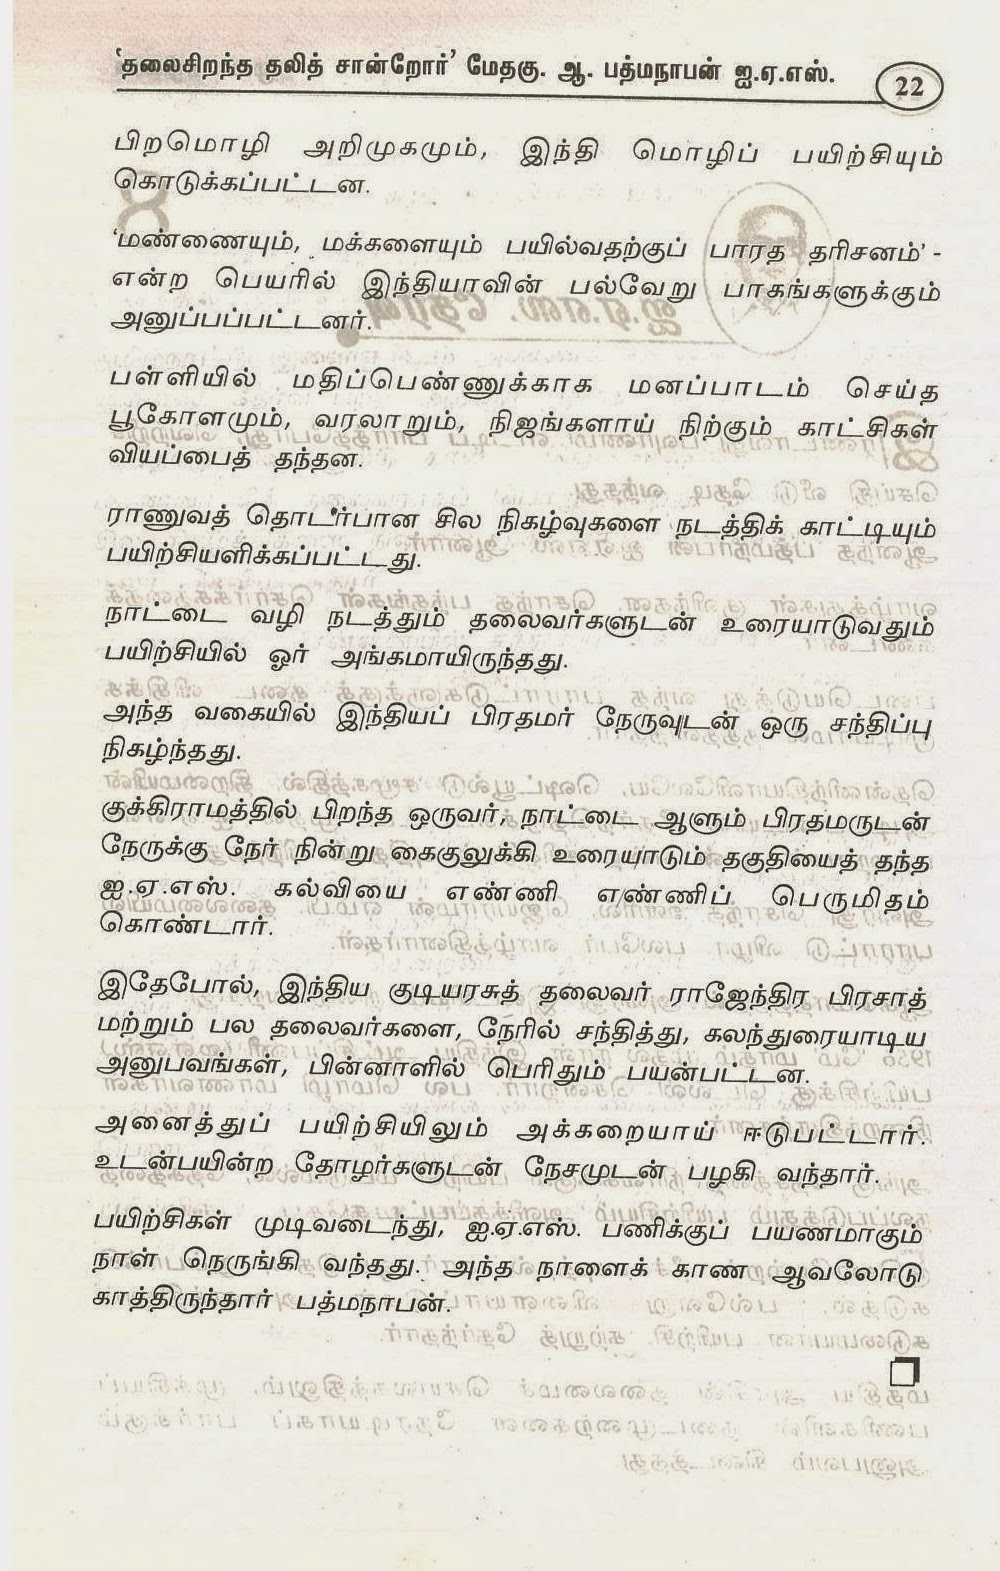 'தலைசிறந்த தலித் சான்றோர்' மேதகு. ஆ. பத்மநாபன் ஐ.ஏ.எஸ்.
22
பிறமொழி அறிமுகமும், இந்தி மொழிப் பயிற்சியும்
கொடுக்கப்பட்டன.
'மண்ணையும், மக்களையும் பயில்வதற்குப் பாரத தரிசனம்' -
என்ற பெயரில் இந்தியாவின் பல்வேறு பாகங்களுக்கும்
அனுப்பப்பட்டனர்.
பள்ளியில் மதிப்பெண்ணுக்காக மனப்பாடம் செய்த
பூகோளமும், வரலாறும், நிஜங்களாய் நிற்கும் காட்சிகள்
வியப்பைத் தந்தன.
ராணுவத் தொடர்பான சில நிகழ்வுகளை நடத்திக் காட்டியும்
பயிற்சியளிக்கப்பட்டது.
நாட்டை வழி நடத்தும் தலைவர்களுடன் உரையாடுவதும்
பயிற்சியில் ஓர் அங்கமாயிருந்தது.
அந்த வகையில் இந்தியப் பிரதமர் நேருவுடன் ஒரு சந்திப்பு
நிகழ்ந்தது.
குக்கிராமத்தில் பிறந்த ஒருவர், நாட்டை ஆளும் பிரதமருடன்
நேருக்கு நேர் நின்று கைகுலுக்கி உரையாடும் தகுதியைத் தந்த
ஐ.ஏ.எஸ். கல்வியை எண்ணி எண்ணிப் பெருமிதம்
கொண்டார்.
இதேபோல், இந்திய குடியரசுத் தலைவர் ராஜேந்திர பிரசாத்
மற்றும் பல தலைவர்களை, நேரில் சந்தித்து, கலந்துரையாடிய
அனுபவங்கள், பின்னாளில் பெரிதும் பயன்பட்டன.
அனைத்துப் பயிற்சியிலும் அக்கறையாய் ஈடுபட்டார்.
உடன்பயின்ற தோழர்களுடன் நேசமுடன் பழகி வந்தார்.
பயிற்சிகள் முடிவடைந்து, ஐ.ஏ.எஸ். பணிக்குப் பயணமாகும்
நாள் நெருங்கி வந்தது. அந்த நாளைக் காண ஆவலோடு
காத்திருந்தார் பத்மநாபன்.